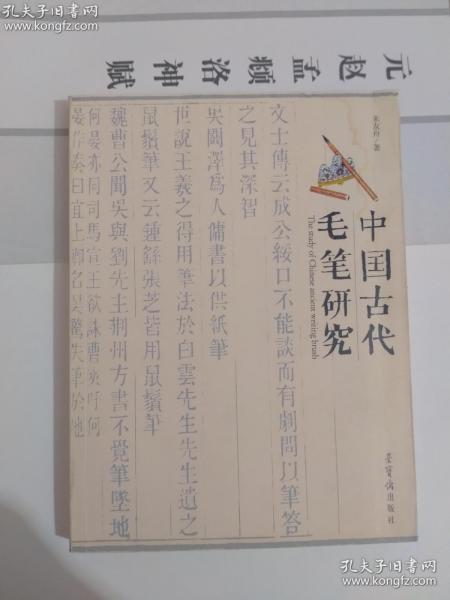 孔夫子旧书网
元赵孟頫洛神赋
朱友舟/著
中国古代
毛笔研究
The study of Chinese ancient writing brush
榮寶齋出版社
文士傳云成公綏口不能談而有劇問以筆答
之見其深智
吳闞澤爲人傭書以供紙筆
世說王羲之得用筆法於白雲先生先生遺之
鼠鬚筆又云鍾繇張芝皆用鼠鬚筆
魏曹公聞吳與劉先主荆州方書不覺筆墜地
何晏亦同司馬宣王欲誅曹爽呼何
晏作奏曰宜上卿名晏驚失筆於地
孔夫子旧书网